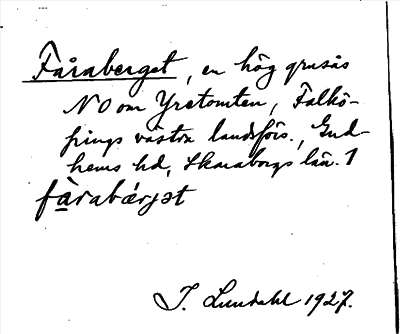 Fåraberget, en hög grusås
NO om Yretomten, Falkö-
pings västra landsförs., Gud-
hems hd, Skaraborgs län. 1
få̀rabǽrjət
I. Lundahl 1927.